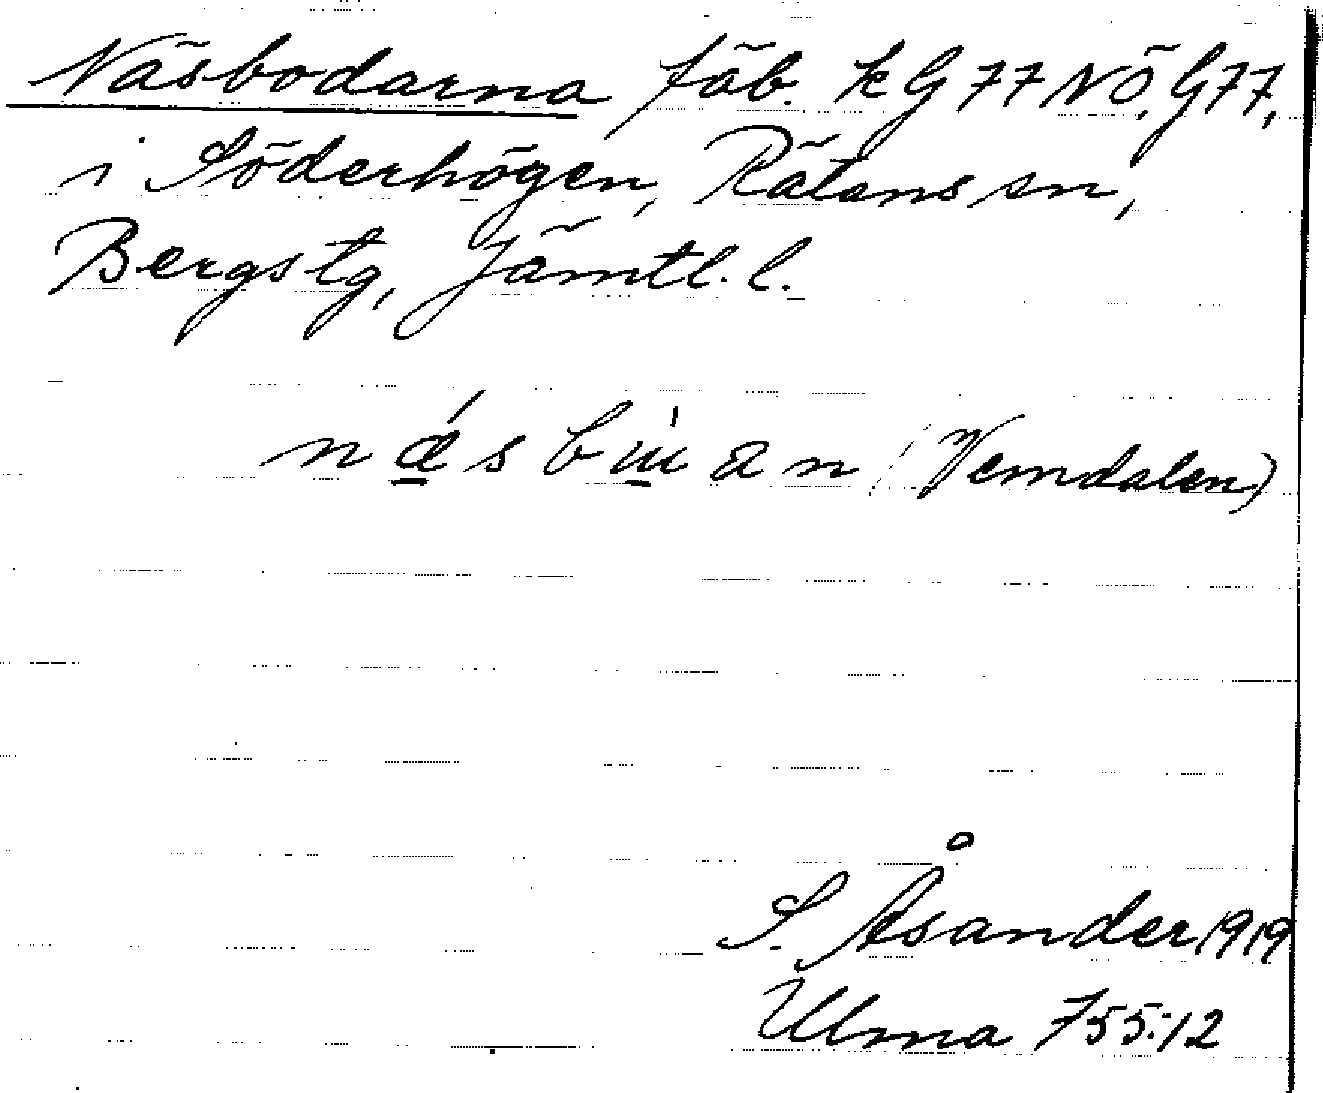 Näsbodarna fäb. kG77NÖ.G77,
i Söderhögen, Rätans sn,
Bergs tg, Jämtl. l.
nǽ̱sbɯ̱́an (Vemdalen)
S. Åsander 1919
Ulma 755:12